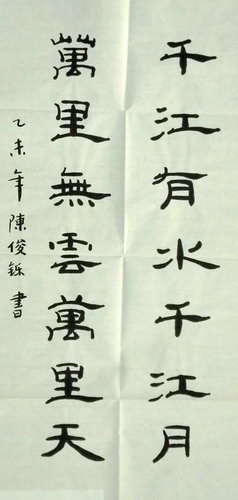 千江有水千江月
萬里無雲萬里天
乙未年陳俊鑠書